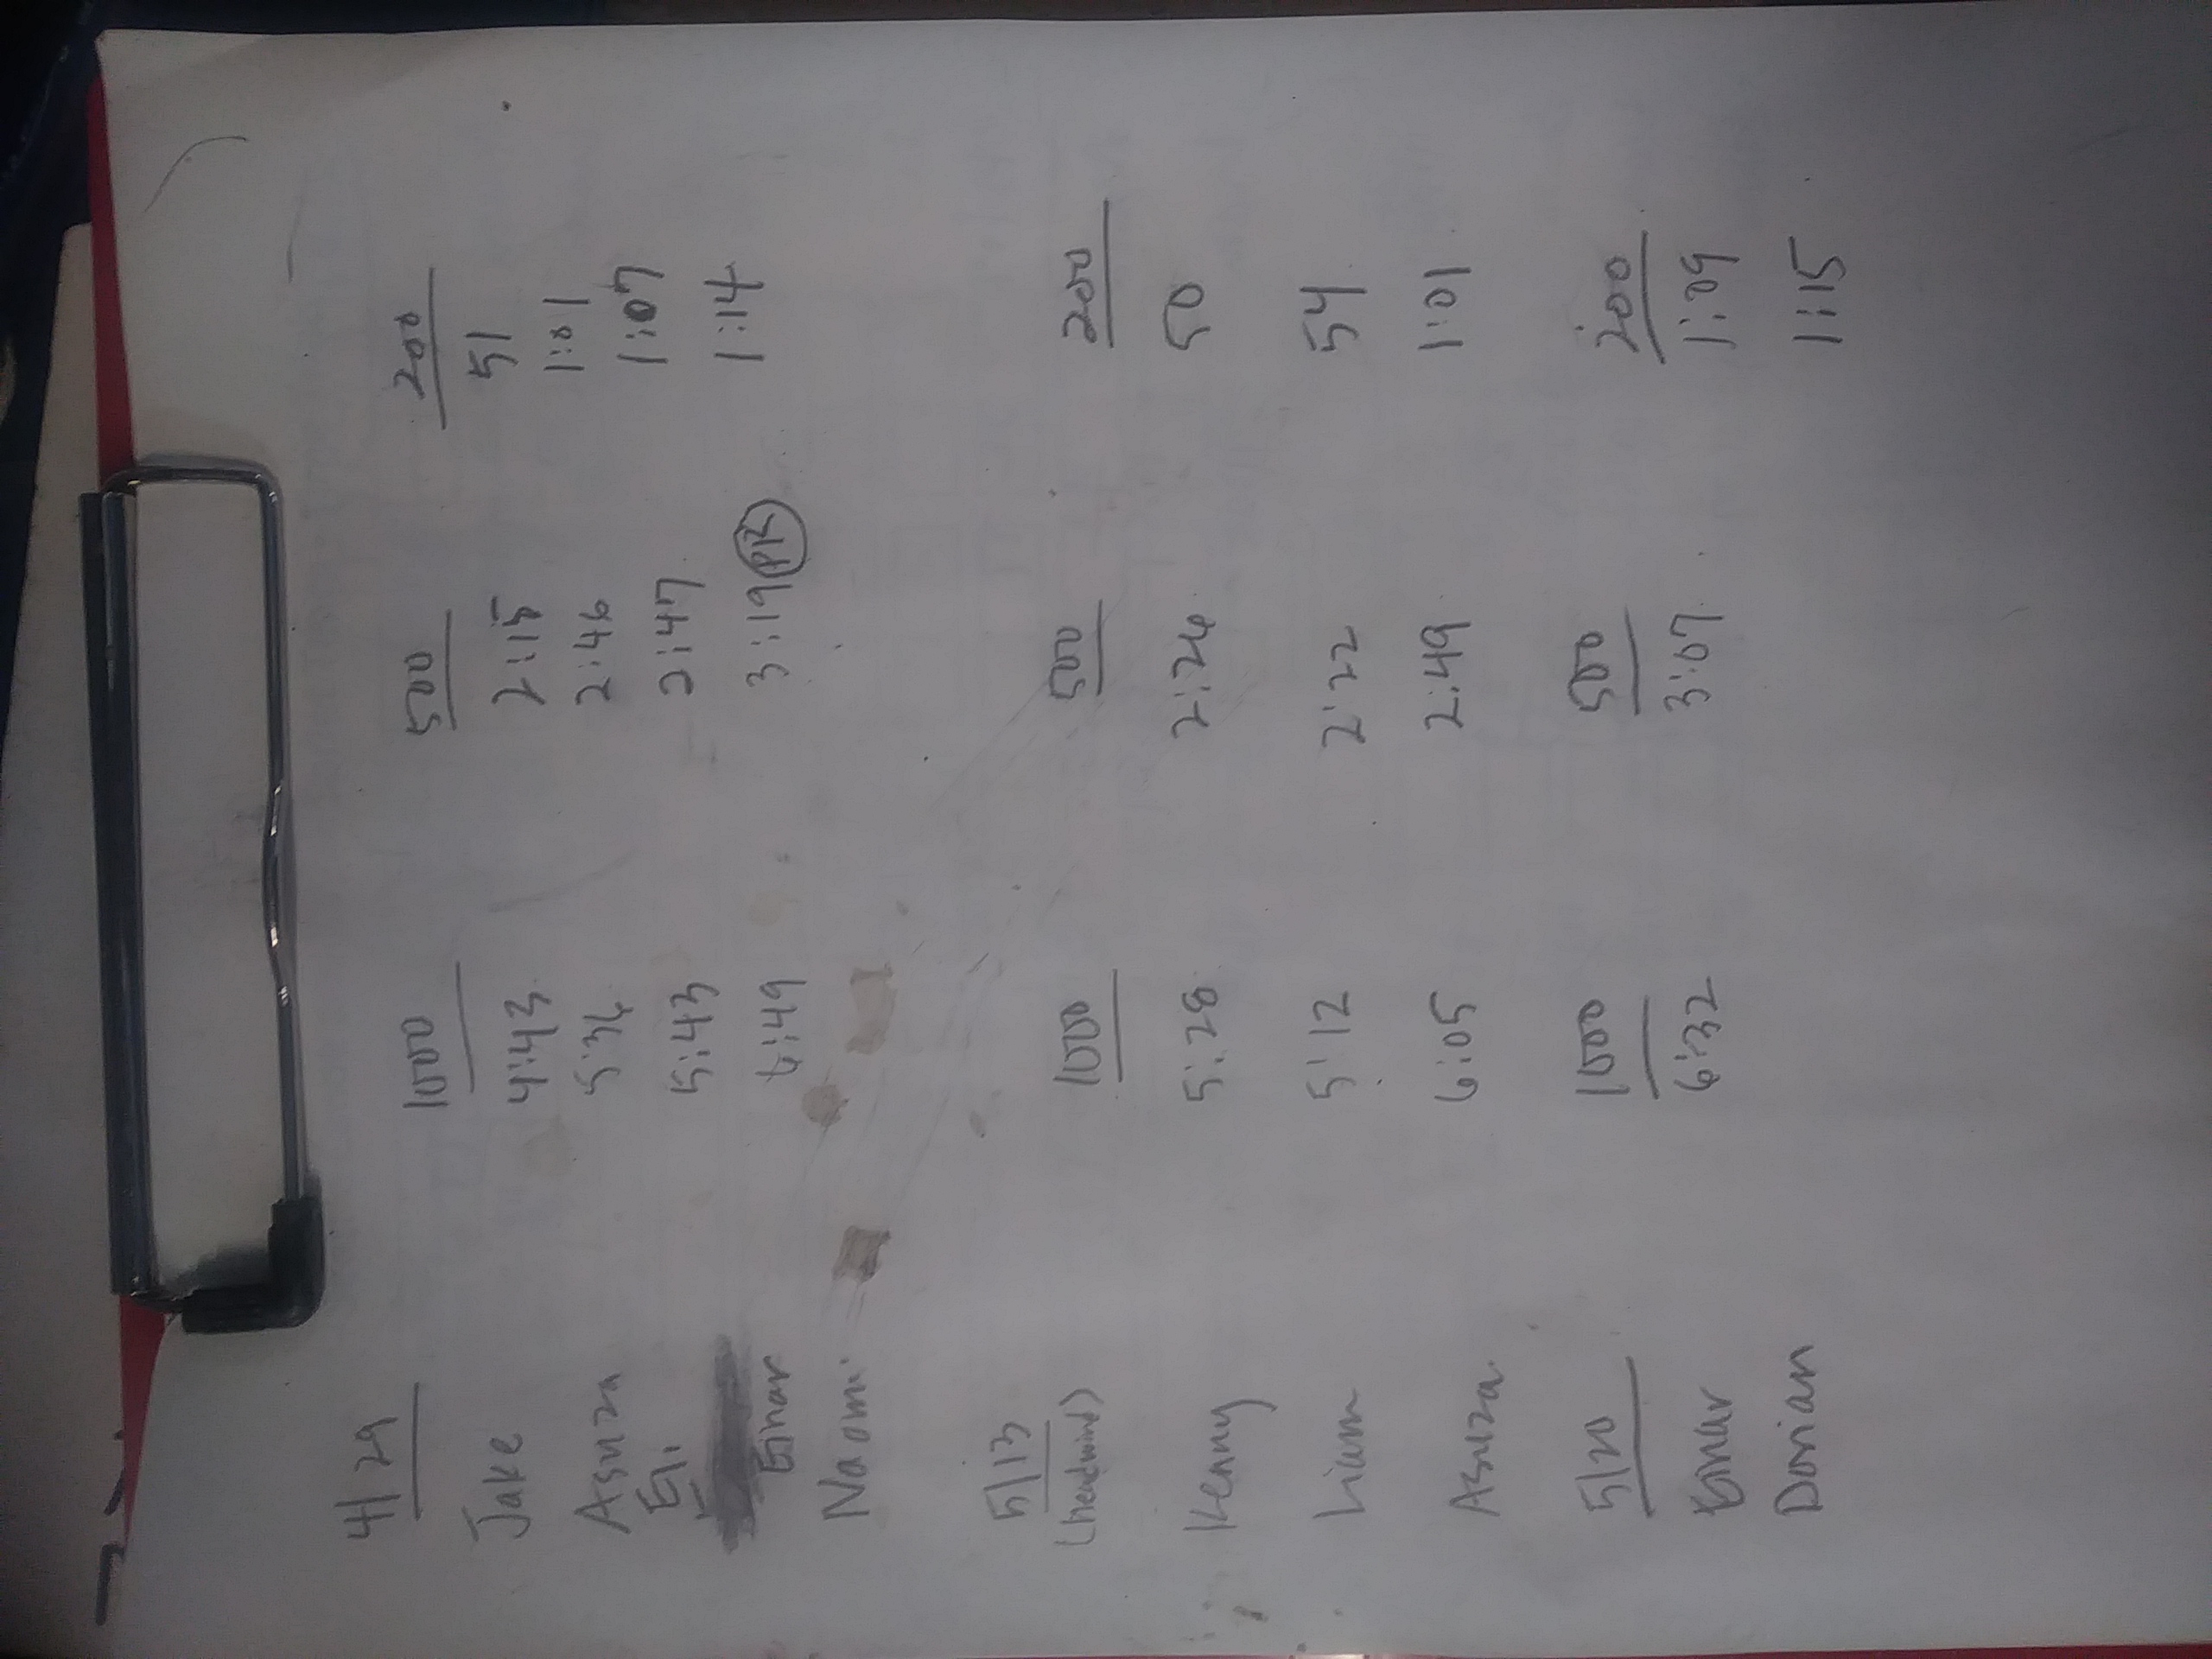 4/29 1000 500 200
Jake 4:43 2:15 51
Asuza 5:36 2:46 1:01
Eli 5:43 2:47 1:07
Einar 6:49 3:19 PR 1:14
Naomi
5/13
(headwind) 1000 500 200
Kenny 5:28 2:24 50
Liam 5:12 2:22 54
Asuza 6:05 2:49 1:01
5/20 1000 500 200
Einar 6:32 3:07 1:09
Dorian 1:15